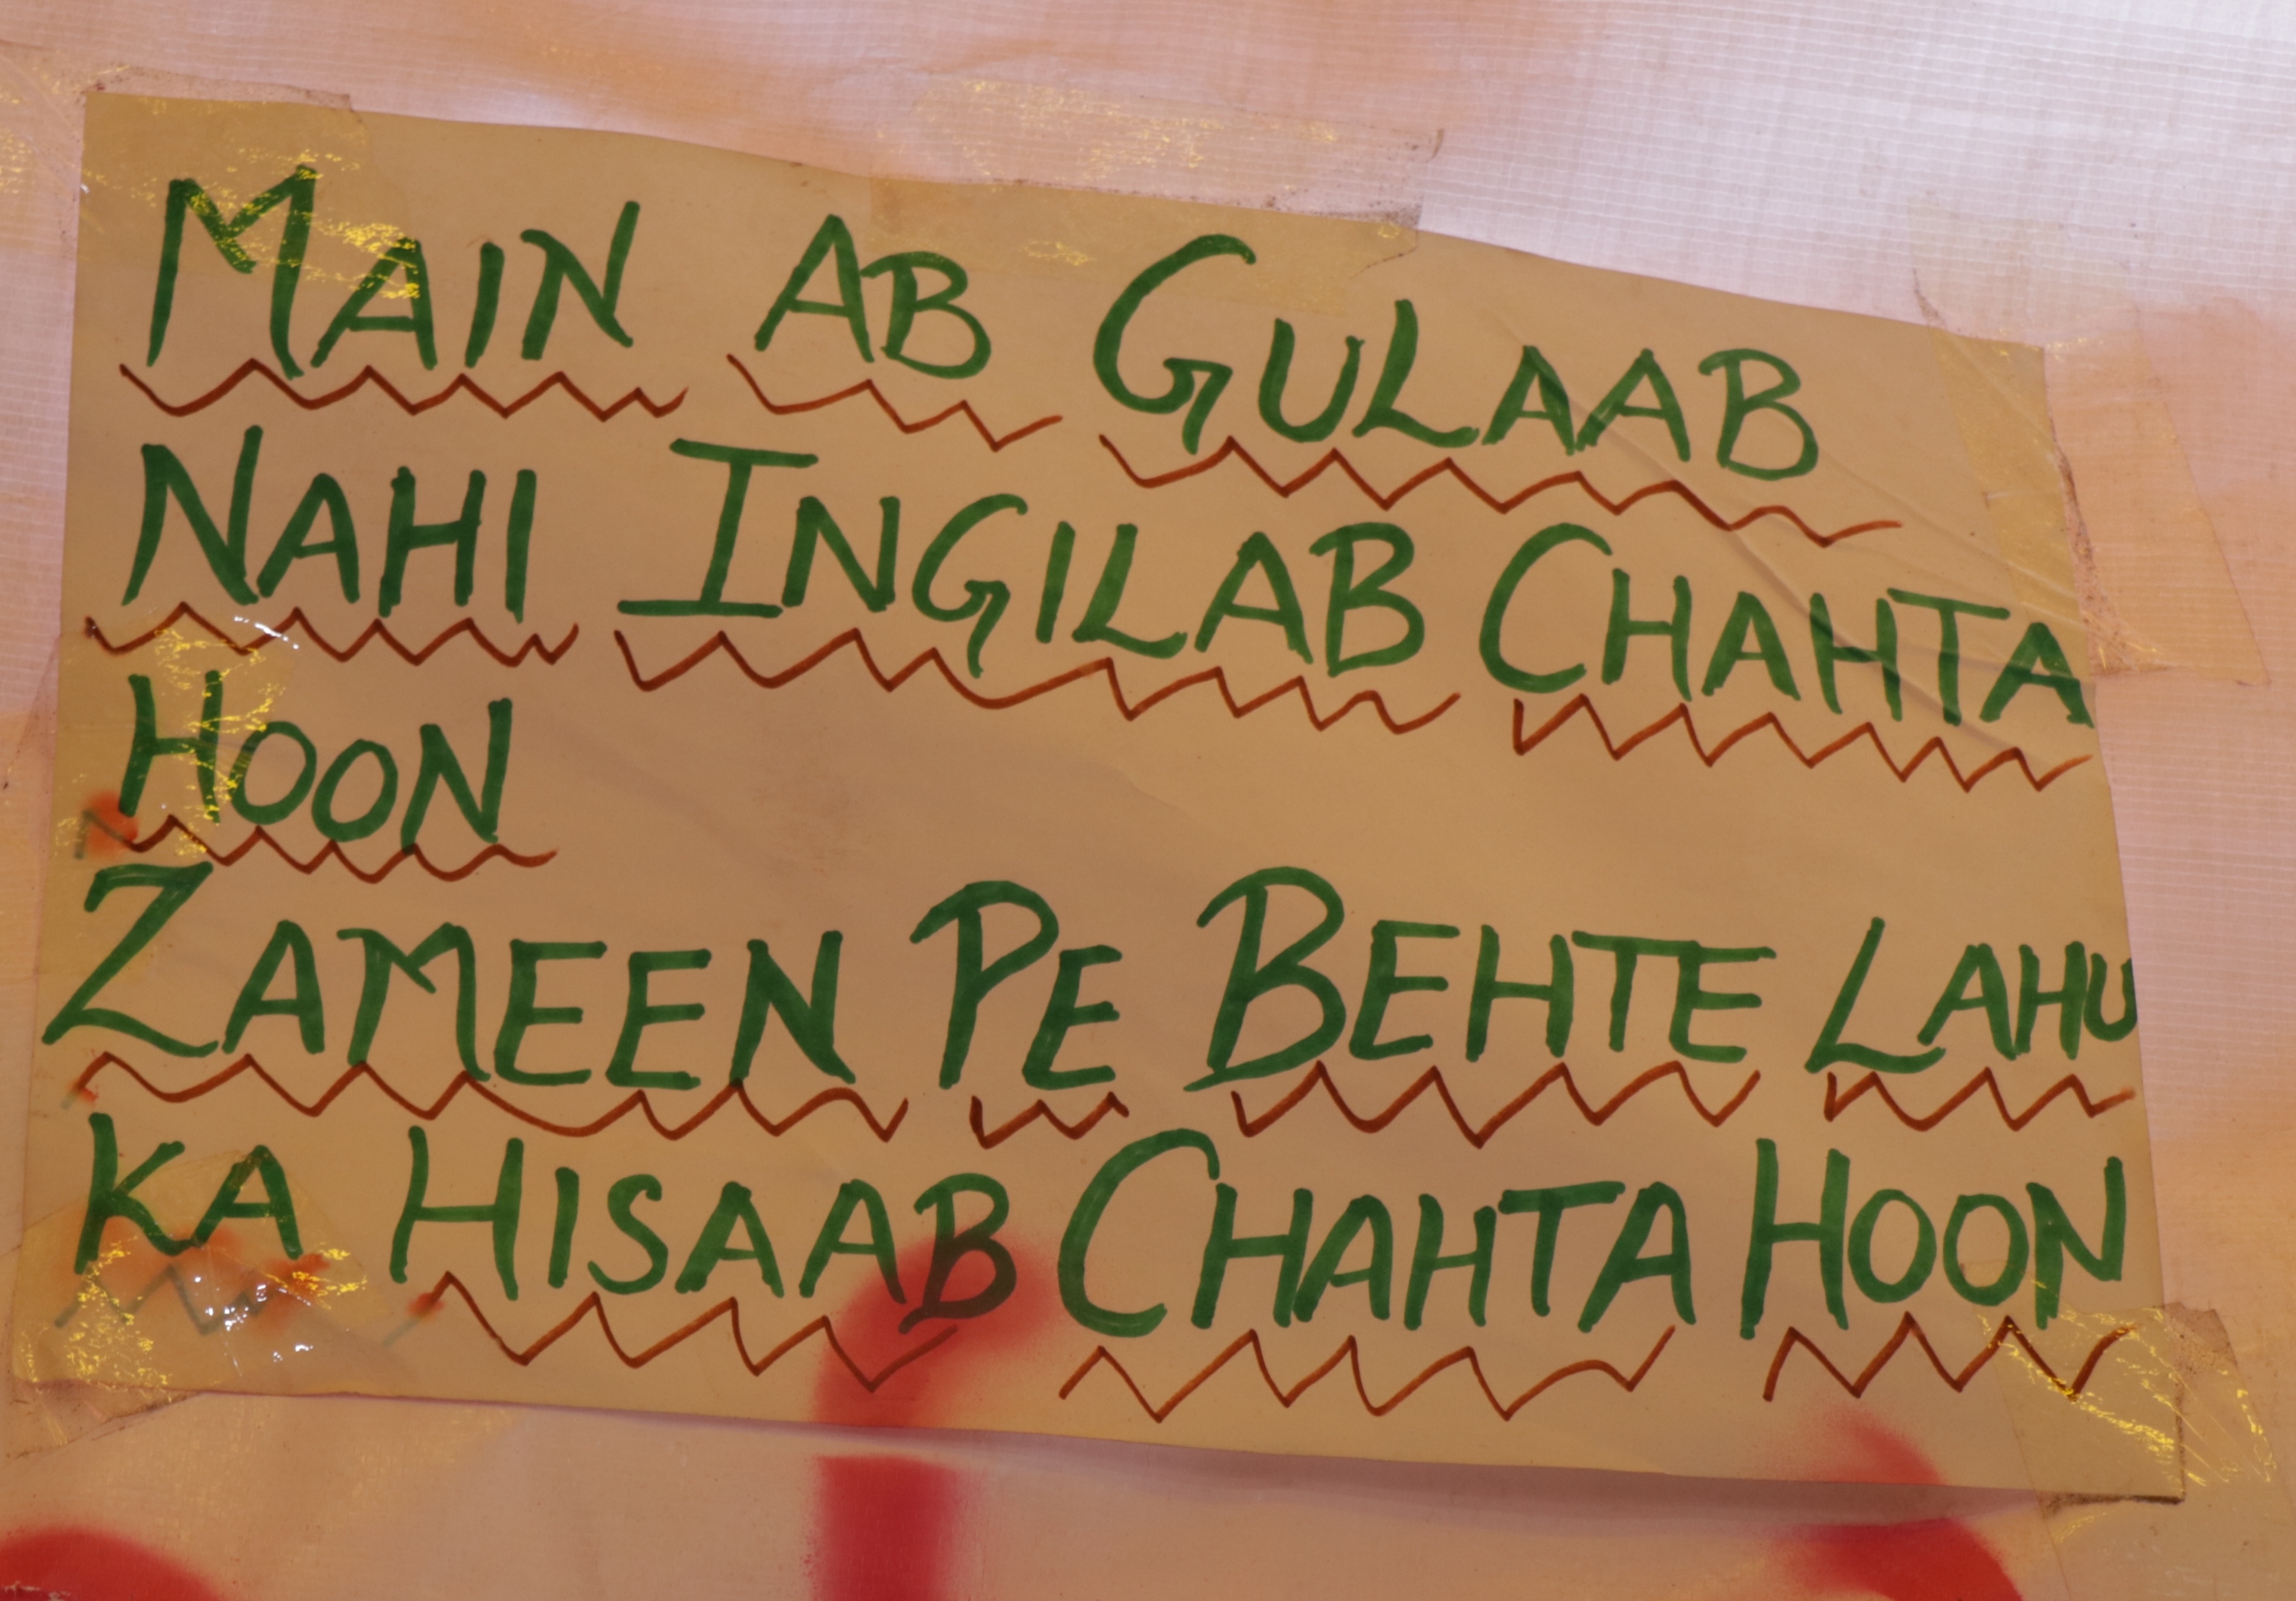 MAIN AB GULAAB
NAHI INGILAB CHAHTA
HOON
ZAMEEN PE BEHTE LAHU
KA HISAAB CHAHTA HOON